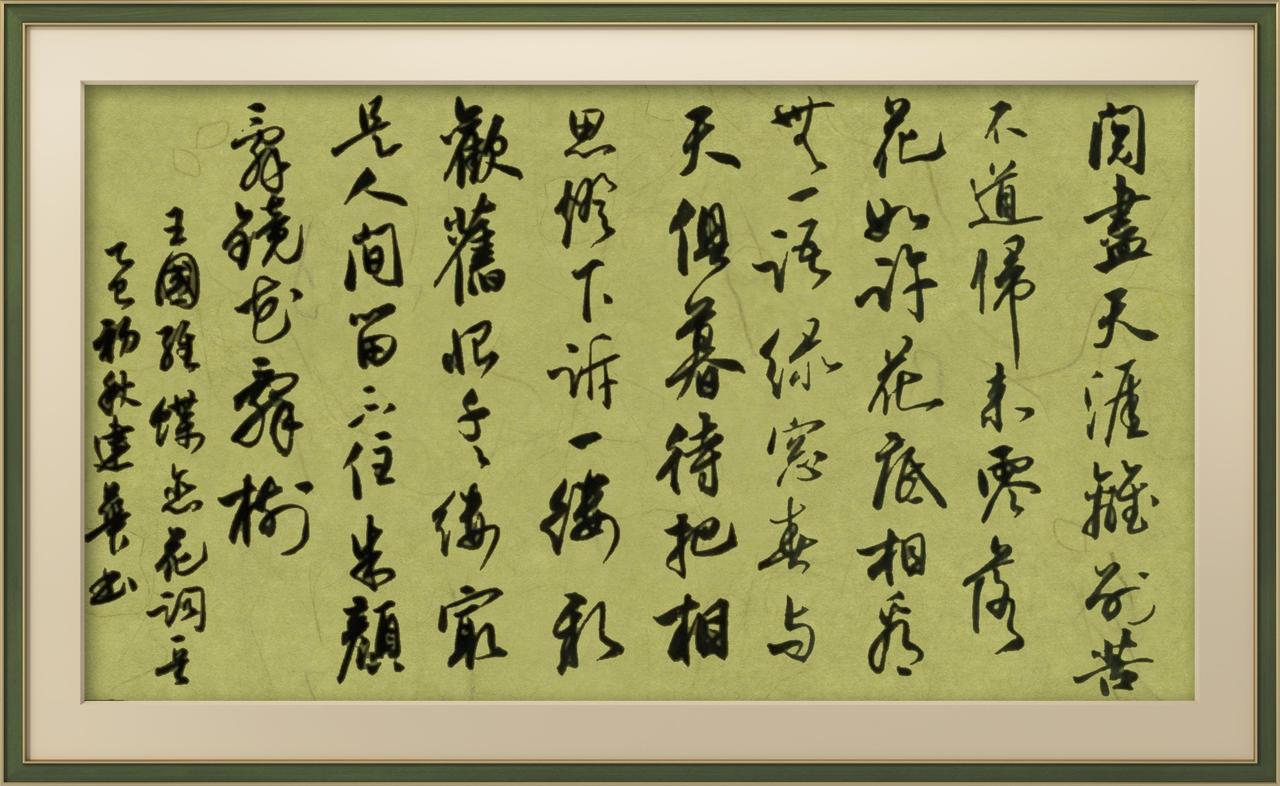 閱盡天涯離別苦
不道歸來零落
花如許花底相看
無一語綠窓春与
天俱暮待把相
思燈下訴一縷新
歡舊恨千々縷最
是人間留不住朱顏
辭鏡花辭樹
王國維蝶恋花詞
乙巳初秋建英书